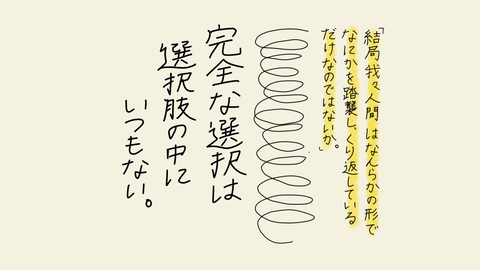 「結局我々人間はなんらかの形で
なにかを踏襲し、くり返している
だけなのではないか。」
完全な選択は
選択肢の中に
いつもない。